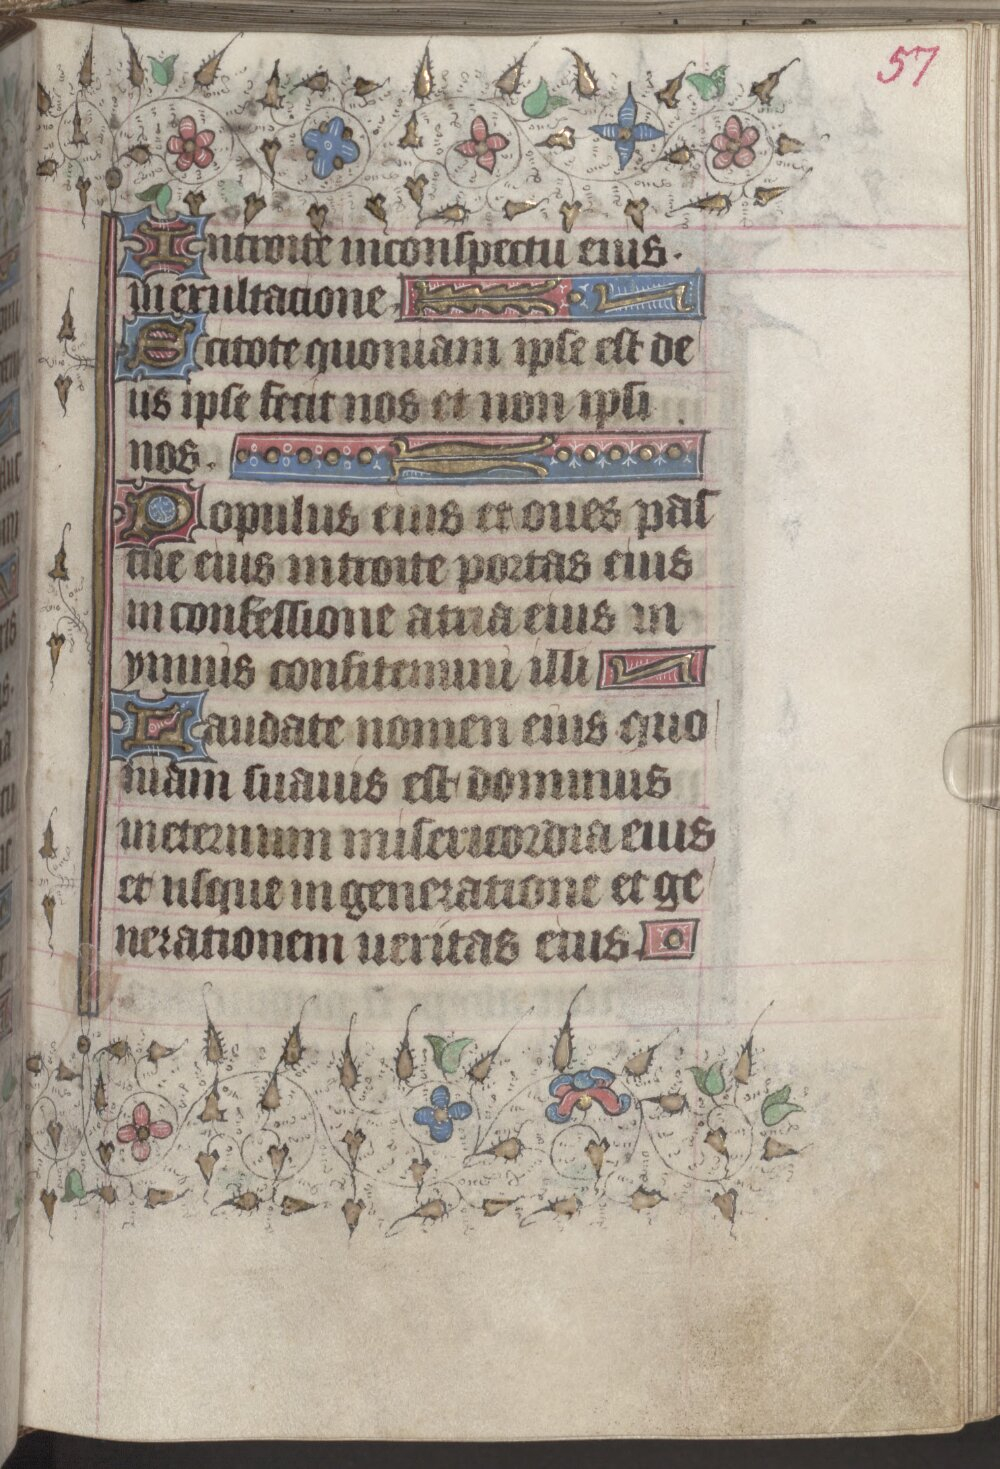 57
Introite in conspectu eius.
in exultacione.
Scitote quoniam ipse est de
us ipse fecit nos et non ipsi
nos.
Populus eius et oues pas
cue eius introite portas eius
in confessione atria eius in
ymnis confitemini illi
Laudate nomen eius quo
niam suauis est dominus
in eternum misericordia eius
et usque in generatione et ge
nerationem ueritas eius.